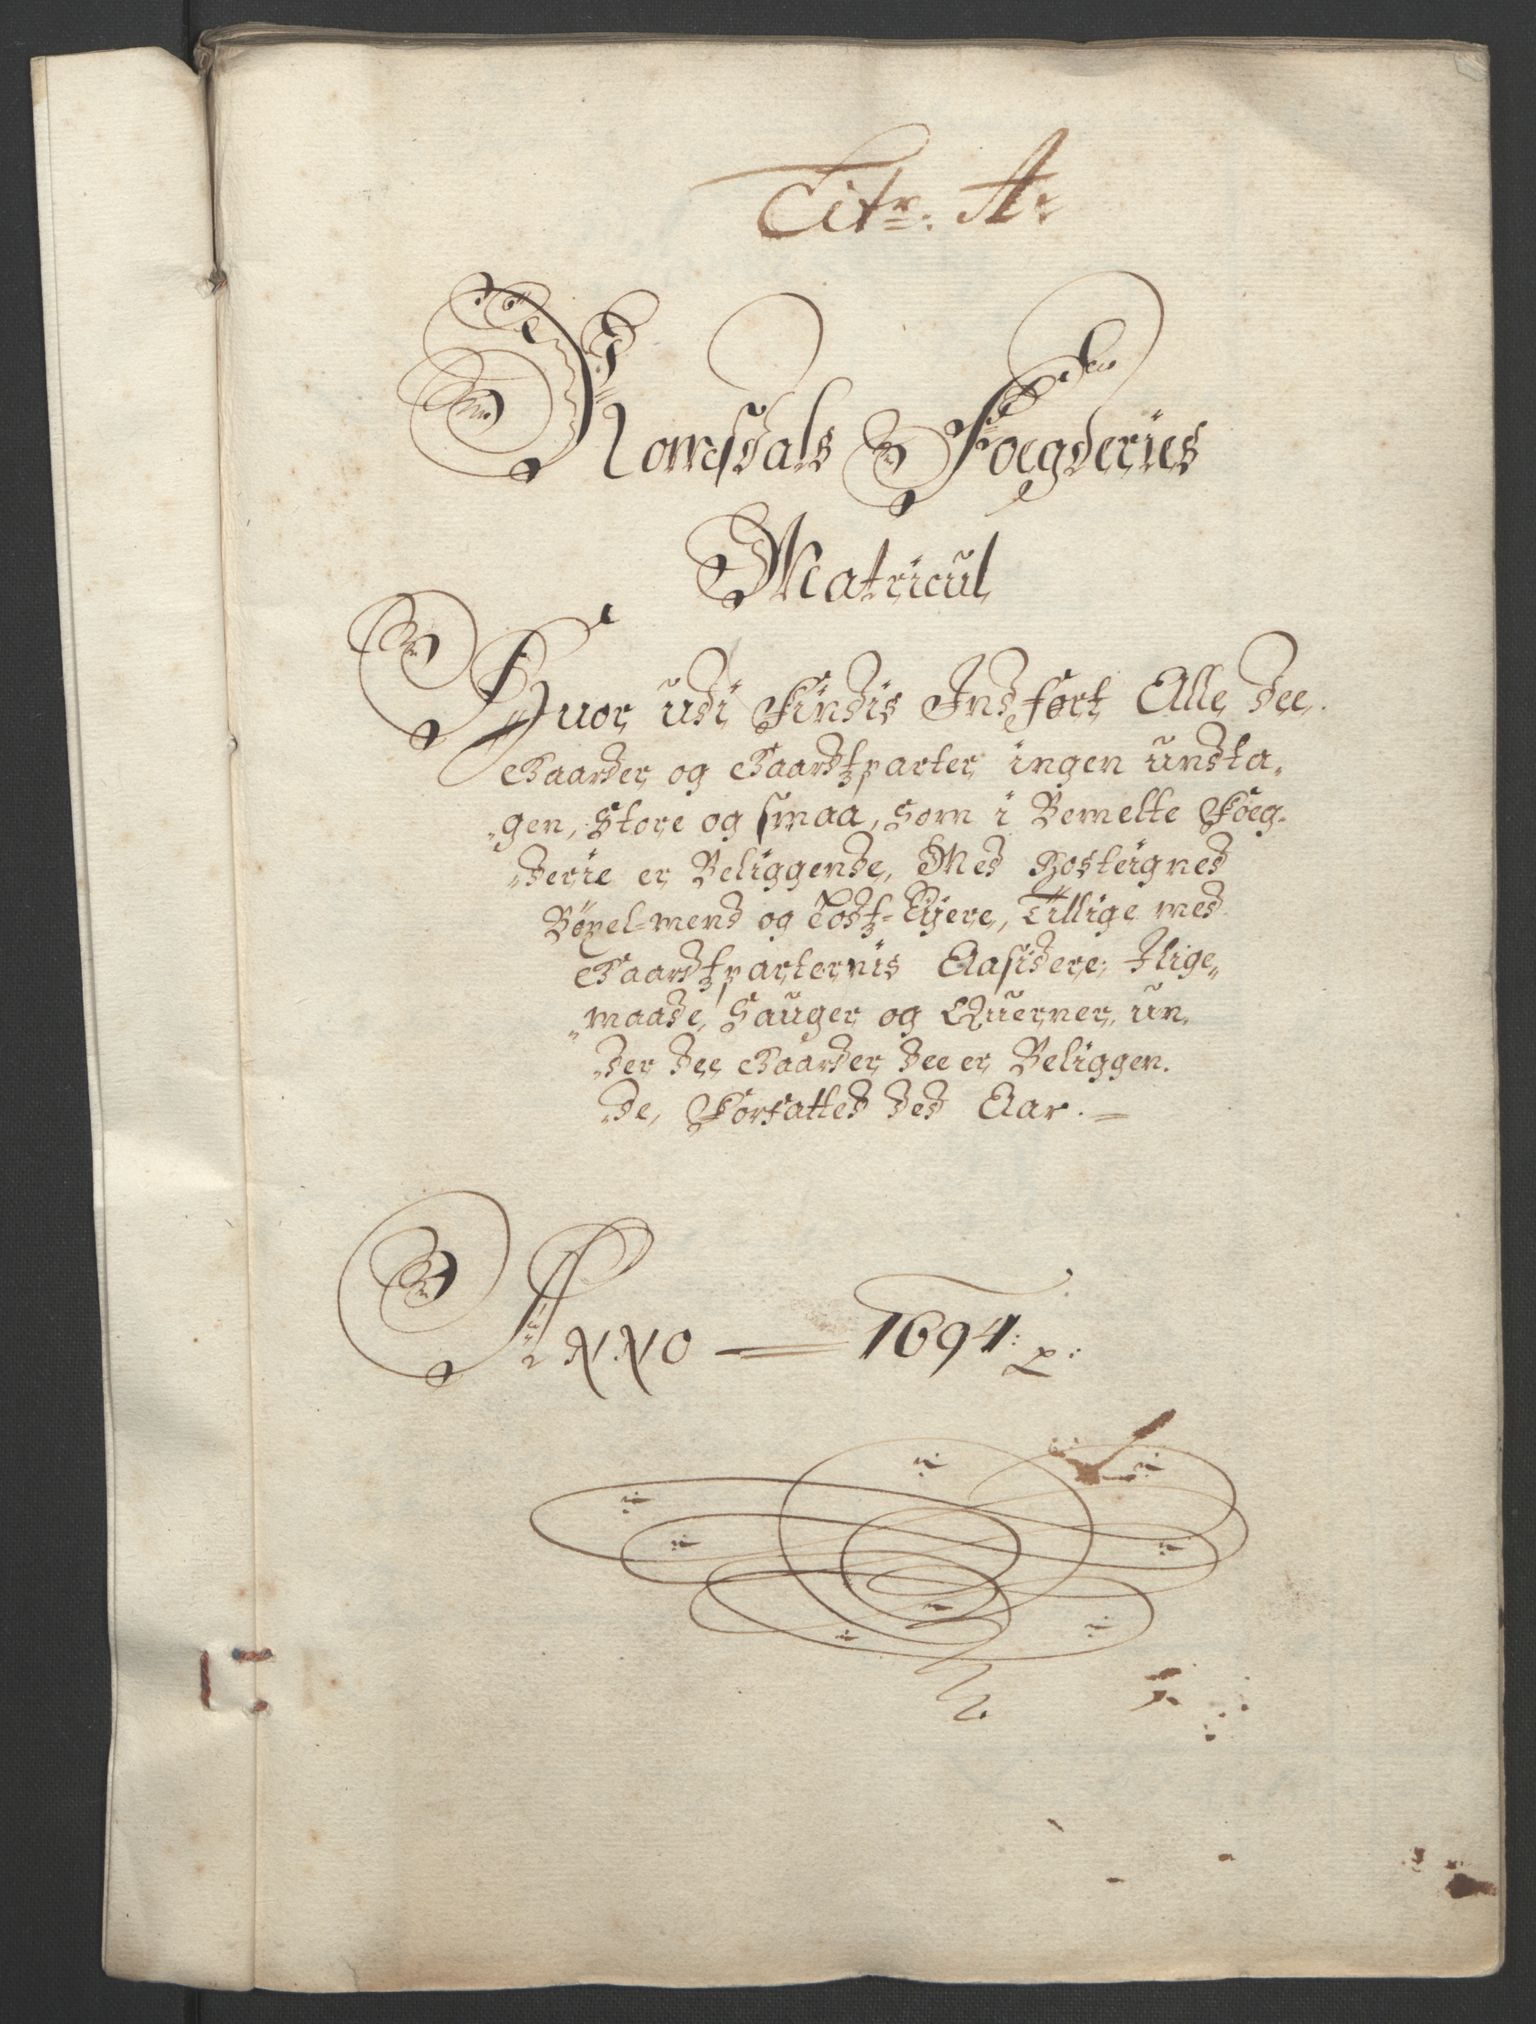 Litr. A.
Romsdals Foegderies
Matricul
Huor udi Findis Indført Alle dee
Gaarder og Gaardtzparter ingen undta-
gen, Store og smaa, som i Bemelte Foeg-
derie er Beliggende, Med Hosteigned
Bøxel-mend og Lodtz-Eyere, Tillige med
Gaardtzparternis Aasidere, Ilige-
maade, Sauger og Querner, un-
der dee Gaarder dee er Beliggen-
de, Forfatted ded Aar.
Anno 1694